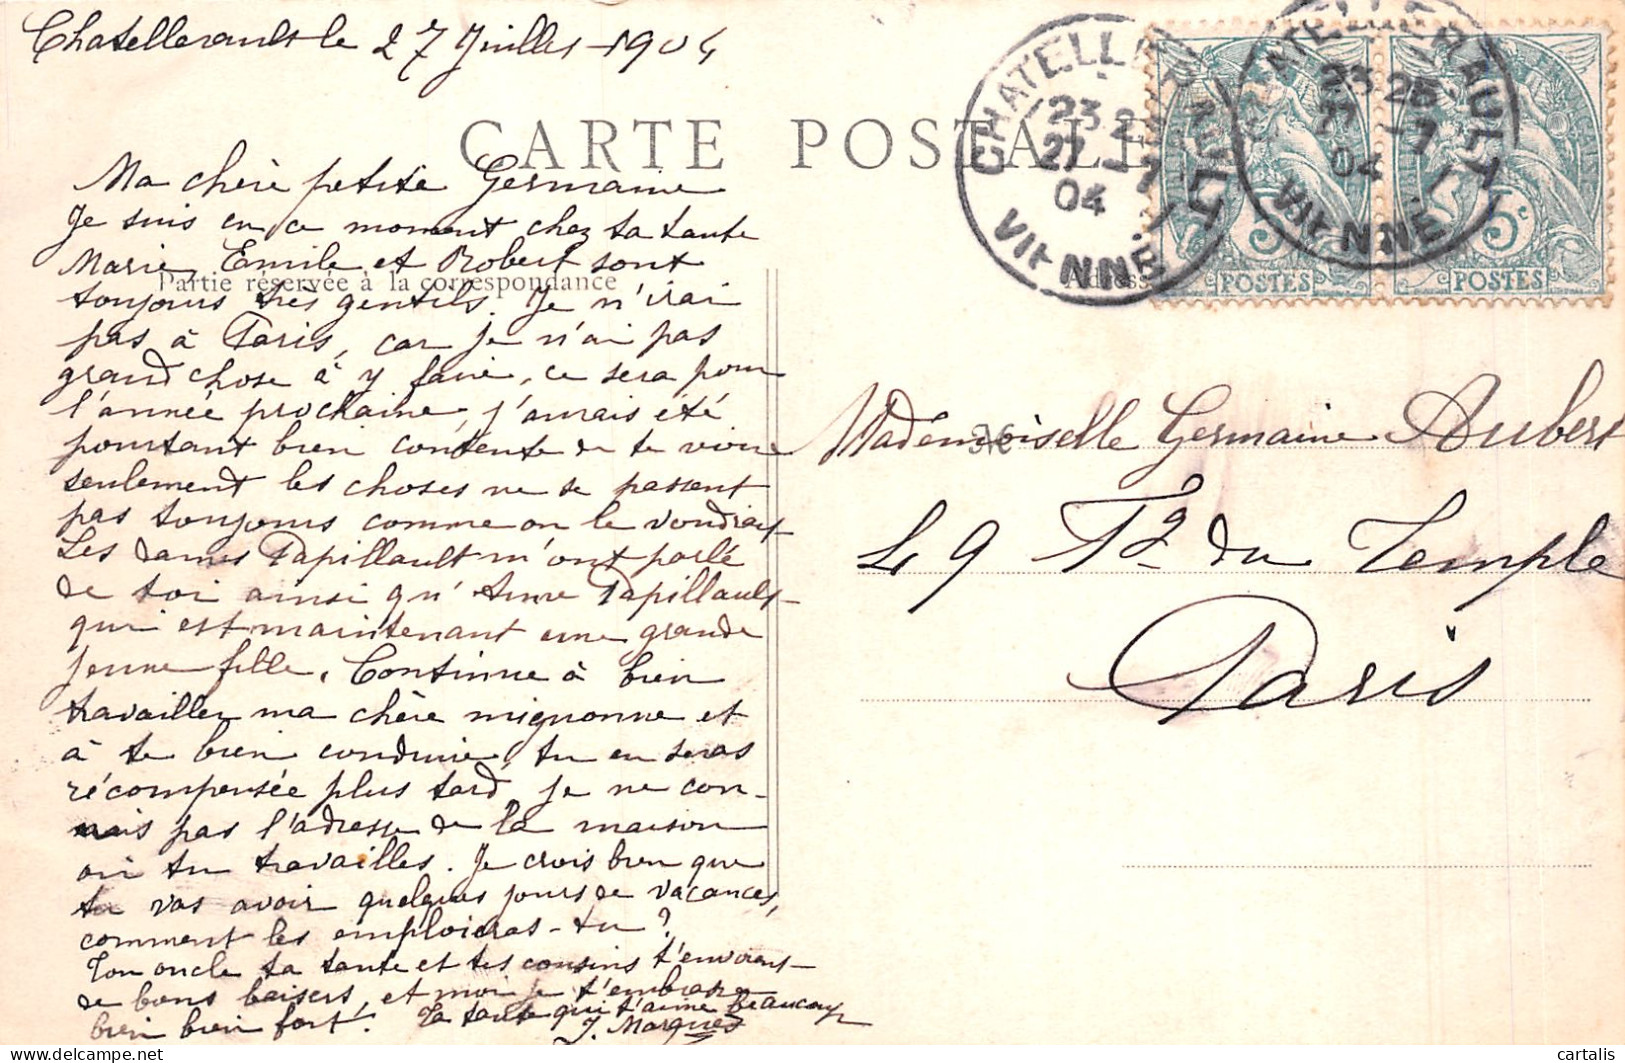 Chatellerault le 27 Juillet 1904
CARTE POSTALE
Ma chère petite Germaine
Je suis en ce moment chez ta tante
Marie, Emile et Robert sont
Partie réservée à la correspondance
toujours très gentils. Je n'irai
pas à Paris, car je n'ai pas
grand chose à y faire, ce sera pour
l'année prochaine, j'aurais été
pourtant bien contente de te voir
seulement les choses ne se passent
pas toujours comme on le voudrait
Les dames Papillault m'ont parlé
de toi ainsi qu' Papillault
qui est maintenant une grande
jeune fille. Continue à bien
travailler ma chère mignonne et
à te bien conduire, tu en seras
récompensée plus tard, je ne con-
nais pas l'adresse de la maison
où tu travailles. Je crois bien que
tu vas avoir quelques jours de vacances,
comment les emploieras-tu?
Ton oncle ta tante et tes cousins t'envoient
de bons baisers, et moi je t'embrasse
bien bien fort. Ta tante qui t'aime beaucoup
J. Marques
CHATELLERAULT
23 25
27 -7
04
VIENNE
CHATELLERAULT
23 25
27 -7
04
VIENNE
5c
POSTES
5c
POSTES
Adresse
M
Mademoiselle Germaine Aubert
49 Fg du Temple
Paris
cartalis
delcampe.net